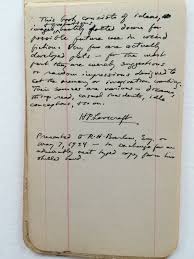 This book consists of ideas,
images, & quotations hastily jotted down for
possible future use in weird
fiction. Very few are actually
developed plots—for the most
part they are merely suggestions
or random impressions designed to
set the memory or imagination working.
Their sources are various—dreams,
things read, casual incidents, idle
conceptions, & so on.
H P Lovecraft
Presented to R. H. Barlow, Esq., on
May 7, 1934—in exchange for an
admirably neat typed copy from his
skilled hand.